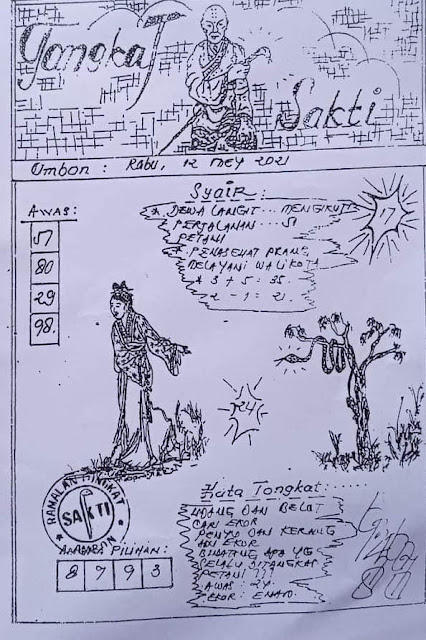 Tongkat Sakti
Ombon : RABU, 12 MEY 2021
Syair :
AWAS:
51
80
29
98.
* DEWA LANGIT ... MENGIKUTI
PERJALANAN ... SI
PETANI
* PENASEHAT PRANG
MELAYANI WALIKOTA
* 3 + 5 : 35.
2 - 1 : 21.
17
24
RAMALAN TINGKAT
SAKTI
Kata Tongkat:......
UDANG DAN BELUT
CARI EKOR
PENYU DAN KERANG
ADU EKOR
BINATANG APA YG
SELALU DITANGKAP
PETANI ???
AWAS : 24.
EKOR : ENAM.
PILIHAN :
8 7 9 3
80